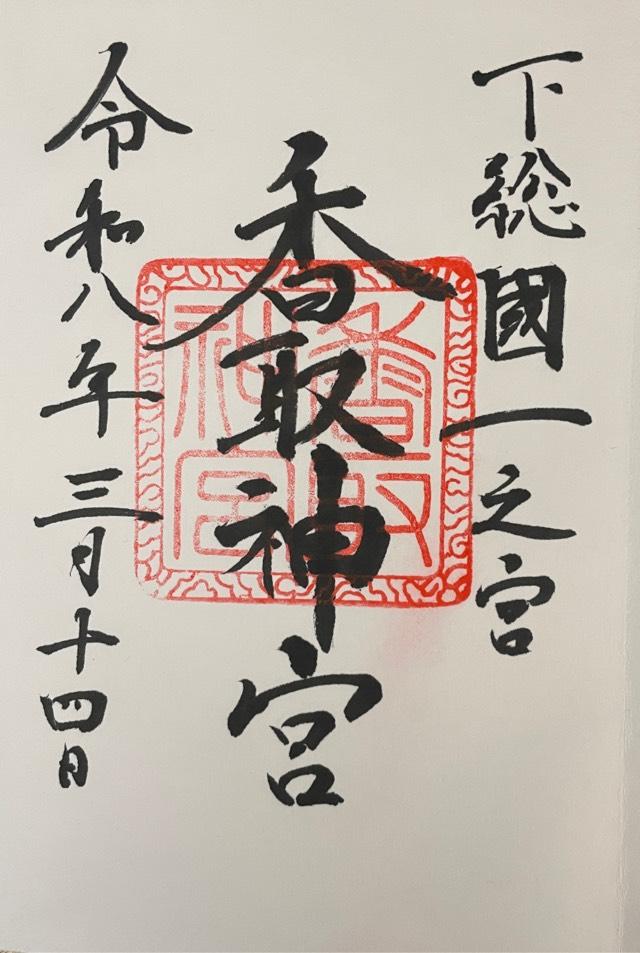 下総國一之宮
香取神宮
香取神宮
令和八年三月十四日